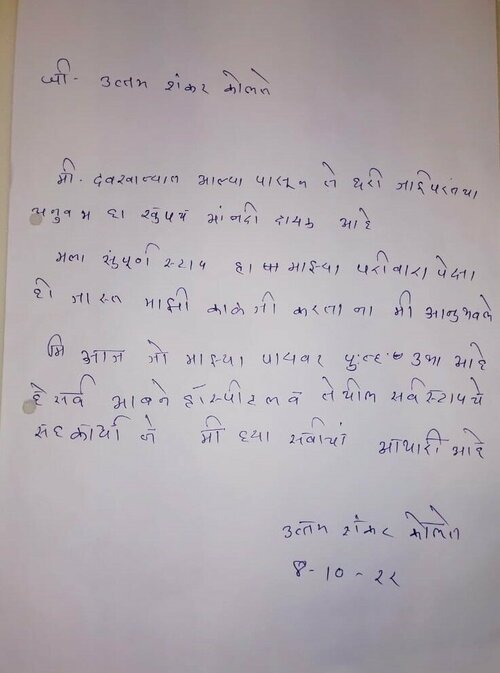 श्री- उत्तम शंकर कोलते
मी. दवखान्यात आल्या पासून ते घरी जाईपरंतचा
अनुभव हा खुपच मांनदी दायक आहे
मला संपुर्ण स्टाप हा माझ्या परीवारा पेक्षा
ही जास्त माझी काळजी करताना मी आनुभवले
मि आज जो माझ्या पायवर पुन्हा उभा आहे
हे सर्व भावने हॉस्पीटल व तेथील सर्व स्टापचे
सहकार्या ने मी ह्या सर्वाचां आभारी आहे
उत्तम शंकर कोलते
8-10-22